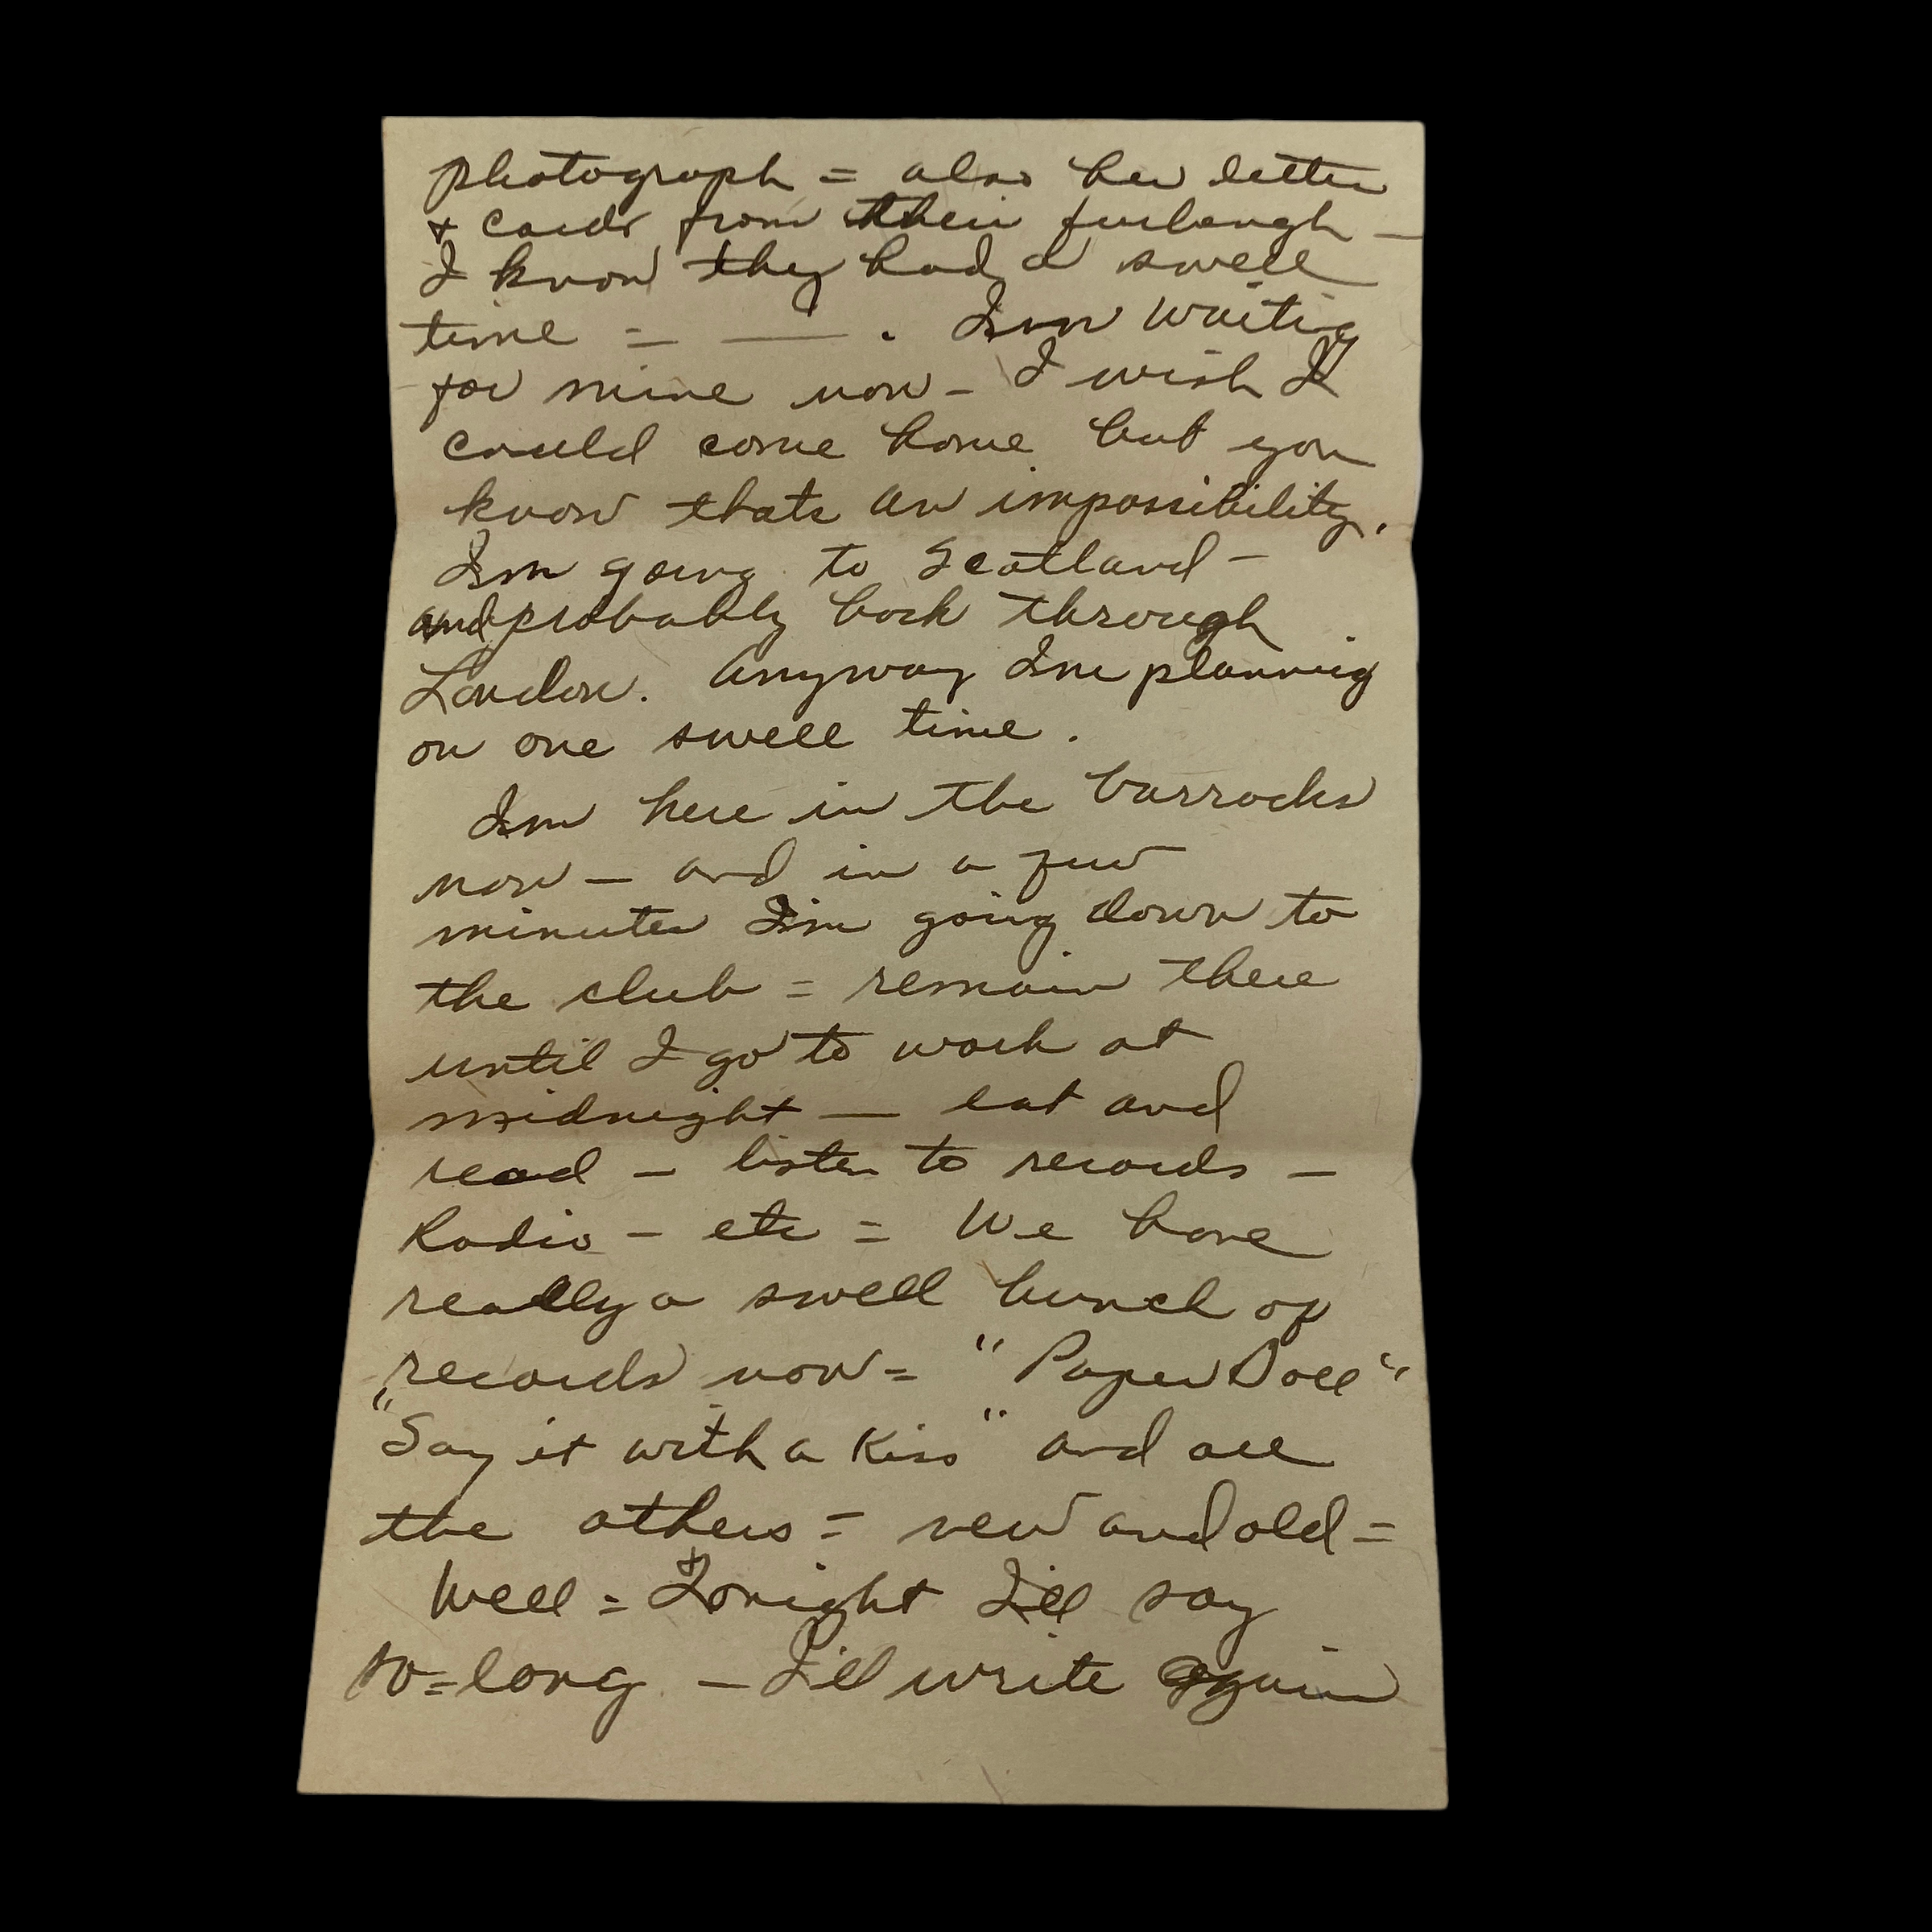 photograph = also her letter
+ cards from their furlough —
I know they had a swell
time = — . Im waitig
for mine now - I wish I
could come home but you
know thats an impossibility.
Im going to Scotland -
and probably back through
London. Anyway Im planning
on one swell time.
Im here in the barrocks
now — and in a few
minutes Im going down to
the club = remain there
until I go to work at
midnight — eat and
read — listen to records —
Radio - etc = We have
really a swell bunch of
records now = "Paper Doll"
"Say it with a Kiss" and all
the others = new and old =
Well = Tonight I'll say
so=long — I'll write again